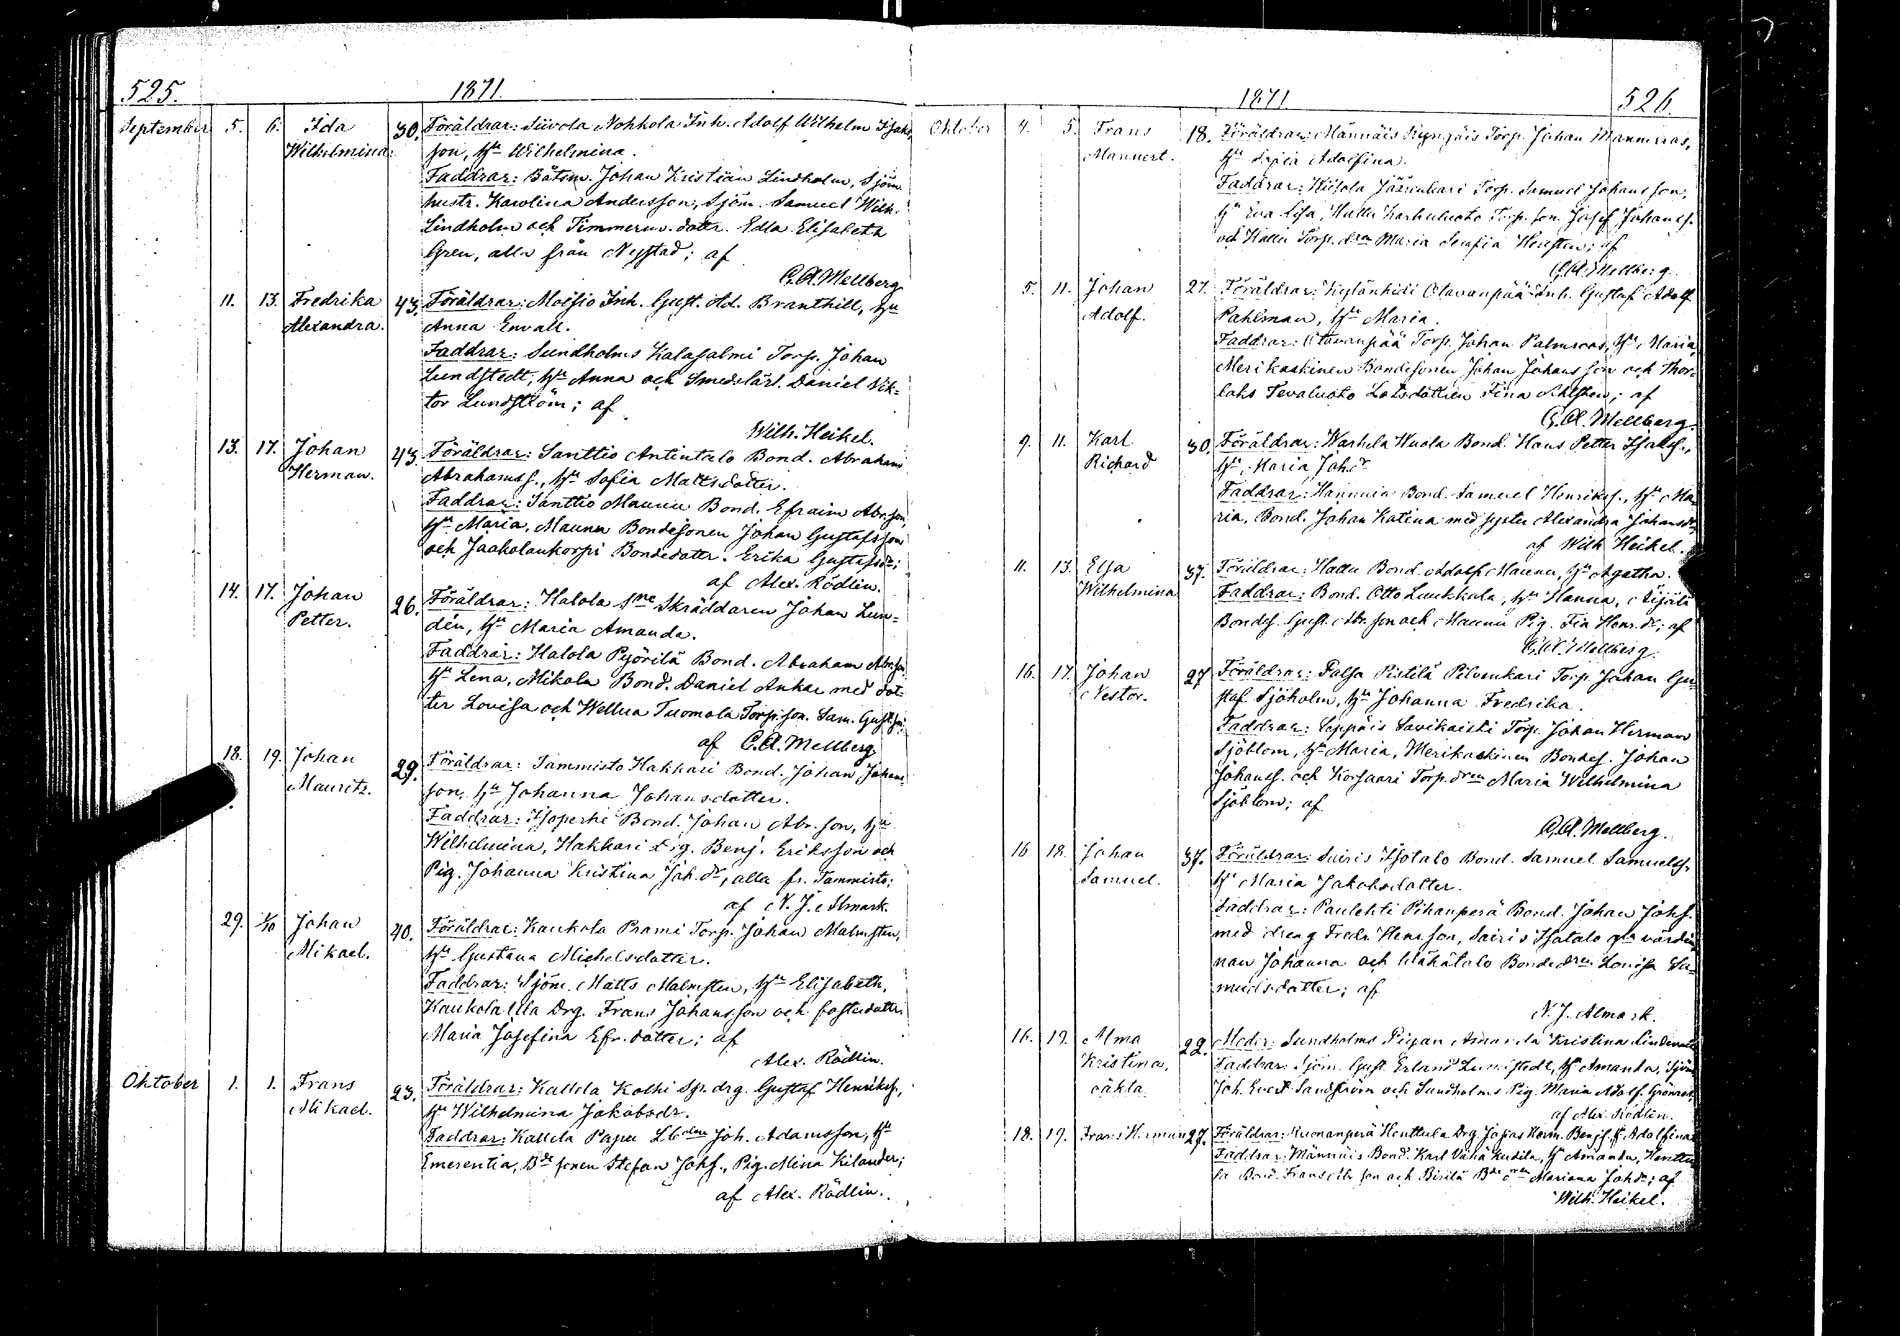 525. 1871.
September 5. 6. Ida 30. Föräldrar: Siivola Nohkola Inh. Adolf Wilhelm Isaks
Wilhelmina. son, Hu Wilhelmina.
Faddrar: Båtsm. Johan Kristian Lindholm, Sjöm.
hustr. Karolina Andersson, Sjöm. Samuel Wilh.
Lindholm och Timmerm. dottr. Edla Elisabeth
Gren, alla från Nystad; af
C.A. Mellberg
11. 13. Fredrika 43. Föräldrar: Moisio Inh. Gust. Ad. Branthill, Hu
Alexandra. Anna Envall.
Faddrar: Sundholms Kalasalmi Torp. Johan
Lundstedt, Hu Anna och Smedslärl. Daniel Vik=
tor Lundström; af
Wilh. Heikel.
13. 17. Johan 43. Föräldrar: Santtio Antintalo Bond. Abraham
Herman. Abrahamss., Hu Sofia Mattsdotter.
Faddrar: Santtio Maunu Bond. Efraim Abr.son,
Hu Maria, Maunu Bondesonen Johan Gustafsson
och Jaakolankorpi Bondedottr. Erika Gustafsdr;
af Alex. Rödlin.
14. 17. Johan 26. Föräldrar: Halola Sne Skräddaren Johan Lun=
Petter. dén, Hu Maria Amanda.
Faddrar: Halola Pyörilä Bond. Abraham Abr.son
Hu Lena, Mikola Bond. Daniel Ankar med dot=
ter Lovisa och Wellua Tuomola Torp.son. Sam. Gust.son;
af C.A. Mellberg
18. 19. Johan 29. Föräldrar: Tammisto Hakkari Bond. Johan Johans
Mauritz. son, Hu Johanna Johansdotter.
Faddrar: Isoperhe Bond. Johan Abr.son, Hu
Wilhelmina, Hakkari Drg. Benj. Eriksson och
Pig. Johanna Kristina Joh.dr, alla fr. Tammisto;
af N. J. Almark.
29. 1/10 Johan 40. Föräldrar: Kaukola Prami Torp. Johan Malmsten,
Mikael. Hu Gustava Michelsdotter.
Faddrar: Sjöm. Matts Malmsten, Hu Elisabeth,
Kaukola Ulla Drg. Frans Johansson och fosterdottr.
Maria Josefina Efr.dotter; af
Alex. Rödlin.
Oktober 1. 1. Frans 23. Föräldrar: Kallela Kolhi Sp. drg. Gustaf Henrikss.,
Mikael. Hu Wilhelmina Jakobsdr.
Faddrar: Kallela Papu Joh. Adamsson, Hu
Emerentia, Bdesonen Stefan Johs., Pig. Mina Kilander;
af Alex. Rödlin.
1871 526.
Oktober 4. 5. Frans 18. Föräldrar: Männäis Torp. Johan Mannerros,
Mannert. Hu Sofia Adolfina.
Faddrar: Torp. Samuel Johansson,
Hu Eva Lisa, Hallu Karhuluoto Torp. son. Josef Johanss.
och Hallu Torp. dren Maria Serafia; af
C.A. Mellberg.
5. 11. Johan 27. Föräldrar: Kylänhiisi Otavanpää Inh. Gustaf Adolf
Adolf. Pahlman, Hu Maria.
Faddrar: Otavanpää Torp. Johan Palmroos, Hu Maria,
Merikaskinen Bondesonen Johan Johansson och Thor=
laks Tevaluoto Lotsdottren Fina Ahlsten; af
C.A. Mellberg.
9. 11. Karl 30. Föräldrar: Warhela Huola Bond. Hans Petter Isakss.,
Richard Hu Maria Joh.dr
Faddrar: Hannuia Bond. Samuel Henrikss., Hu Ma=
ria, Bond. Johan Katina med syster Alexandra Johansdr,
af Wilh. Heikel.
11. 13. Elsa 37. Föräldrar: Hallu Bond. Adolf Maunu, Hu Agatha.
Wilhelmina Faddrar: Bond. Otto Laukkala, Hu Hanna, Äijälä
Bondes. Gust. Abr.son och Maunu Pig. Fia Henr.dr; af
C.A. Mellberg.
16. 17. Johan 27 Föräldrar: Palsa Pistilä Pilvenkari Torp. Johan Gu=
Nestor. staf Sjöholm, Hu Johanna Fredrika.
Faddrar: Seppäis Savikaisti Torp. Johan Herman
Sjöblom, Hu Maria, Merikaskinen Bondes. Johan
Johanss. och Korsaari Torp. dren Maria Wilhelmina
Sjöblom; af
C.A. Mellberg.
16 18. Johan 37. Föräldrar: Sairis Isotalo Bond. Samuel Samuelss.
Samuel. Hu Maria Jakobsdotter.
Faddrar: Paulahti Pihanperä Bond. Johan Johs.
med dreng Fredr. Henrsson, Sairis Isotalo gla värdin=
nan Johanna och Wähätalo Bondedren Lovisa Sa=
muelsdotter; af
N. J. Almark.
16. 19. Alma 22. Moder: Sundholms Pigan Amanda Kristina
Kristina, Faddrar: Sjöm. Gust. Erland Lundstedt, Hu Amanda, Sjöm
oäkta Joh. Evert Sandström och Sundholms Pig. Maria Adolf. Grönroos;
af Alex. Rödlin.
18. 19. Frans Herman 27. Föräldrar: Ruonanperä Henttula Drg. Josias Herm. Benj.s. Hu Adolfina
Faddrar: Männäis Bond. Karl Vähä Kestilä, Hu Amanda, Henttu
la Bond. Frans och Birilä Bde dren Mariana Joh.dr; af
Wilh. Heikel.